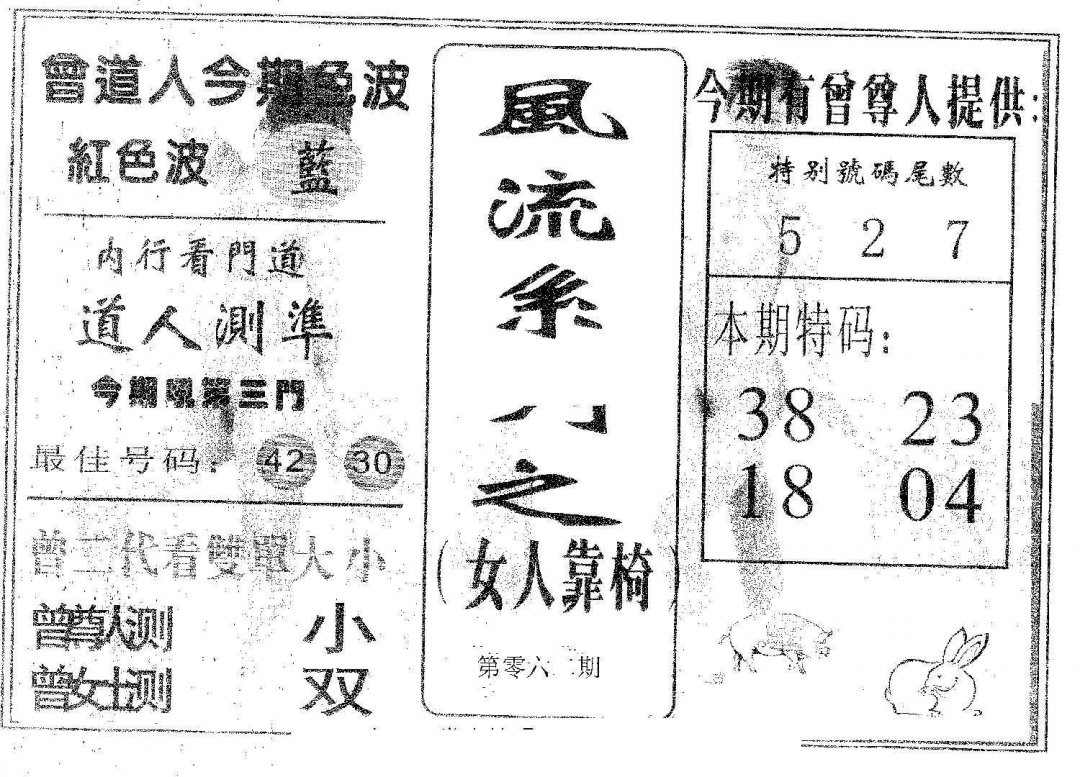 曾道人今期色波
紅色波 藍
内行看門道
道人測準
今期吼第三門
最佳号码: 42 30
曾二代看雙單大小
曾尊人测 小
曾女士测 双
風流系
之
(女人靠椅)
第零六 期
今期有曾尊人提供:
特别號碼尾數
5 2 7
本期特码:
38 23
18 04